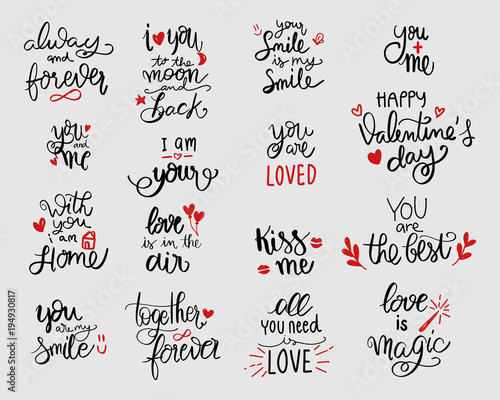 alway and
forever
i you
to the
moon
and
back
your
smile
is my
smile
you
+
me
you
and
me
I am
your
you
are
LOVED
HAPPY
Valentine's
day
With
you
I am
Home
love
is in the
air
Kiss
me
YOU
are
the best
you
are my
smile
together
forever
all
YOU NEED
is
LOVE
love
is
magic
Adobe Stock | #194930817